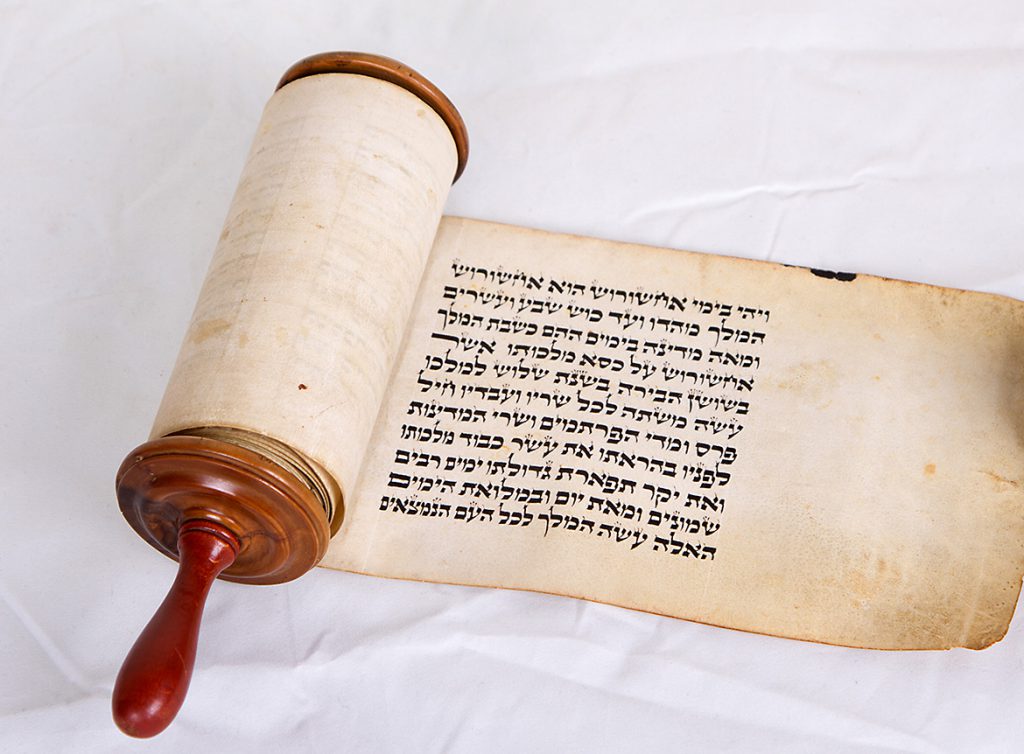 ויהי בימי אחשורוש הוא אחשורוש
המלך מהדו ועד כוש שבע ועשרים
ומאה מדינה בימים ההם כשבת המלך
אחשורוש על כסא מלכותו אשר
בשושן הבירה בשנת שלוש למלכו
עשה משתה לכל שריו ועבדיו חיל
פרס ומדי הפרתמים ושרי המדינות
לפניו בהראתו את עשר כבוד מלכותו
ואת יקר תפארת גדולתו ימים רבים
שמונים ומאת יום ובמלואת הימים
האלה עשה המלך לכל העם הנמצאים